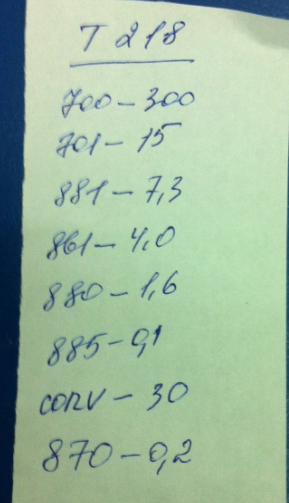 T 218
700 – 300
701 – 15
881 – 7,3
861 – 4,0
880 – 1,6
885 – 0,1
conv – 30
870 – 0,2